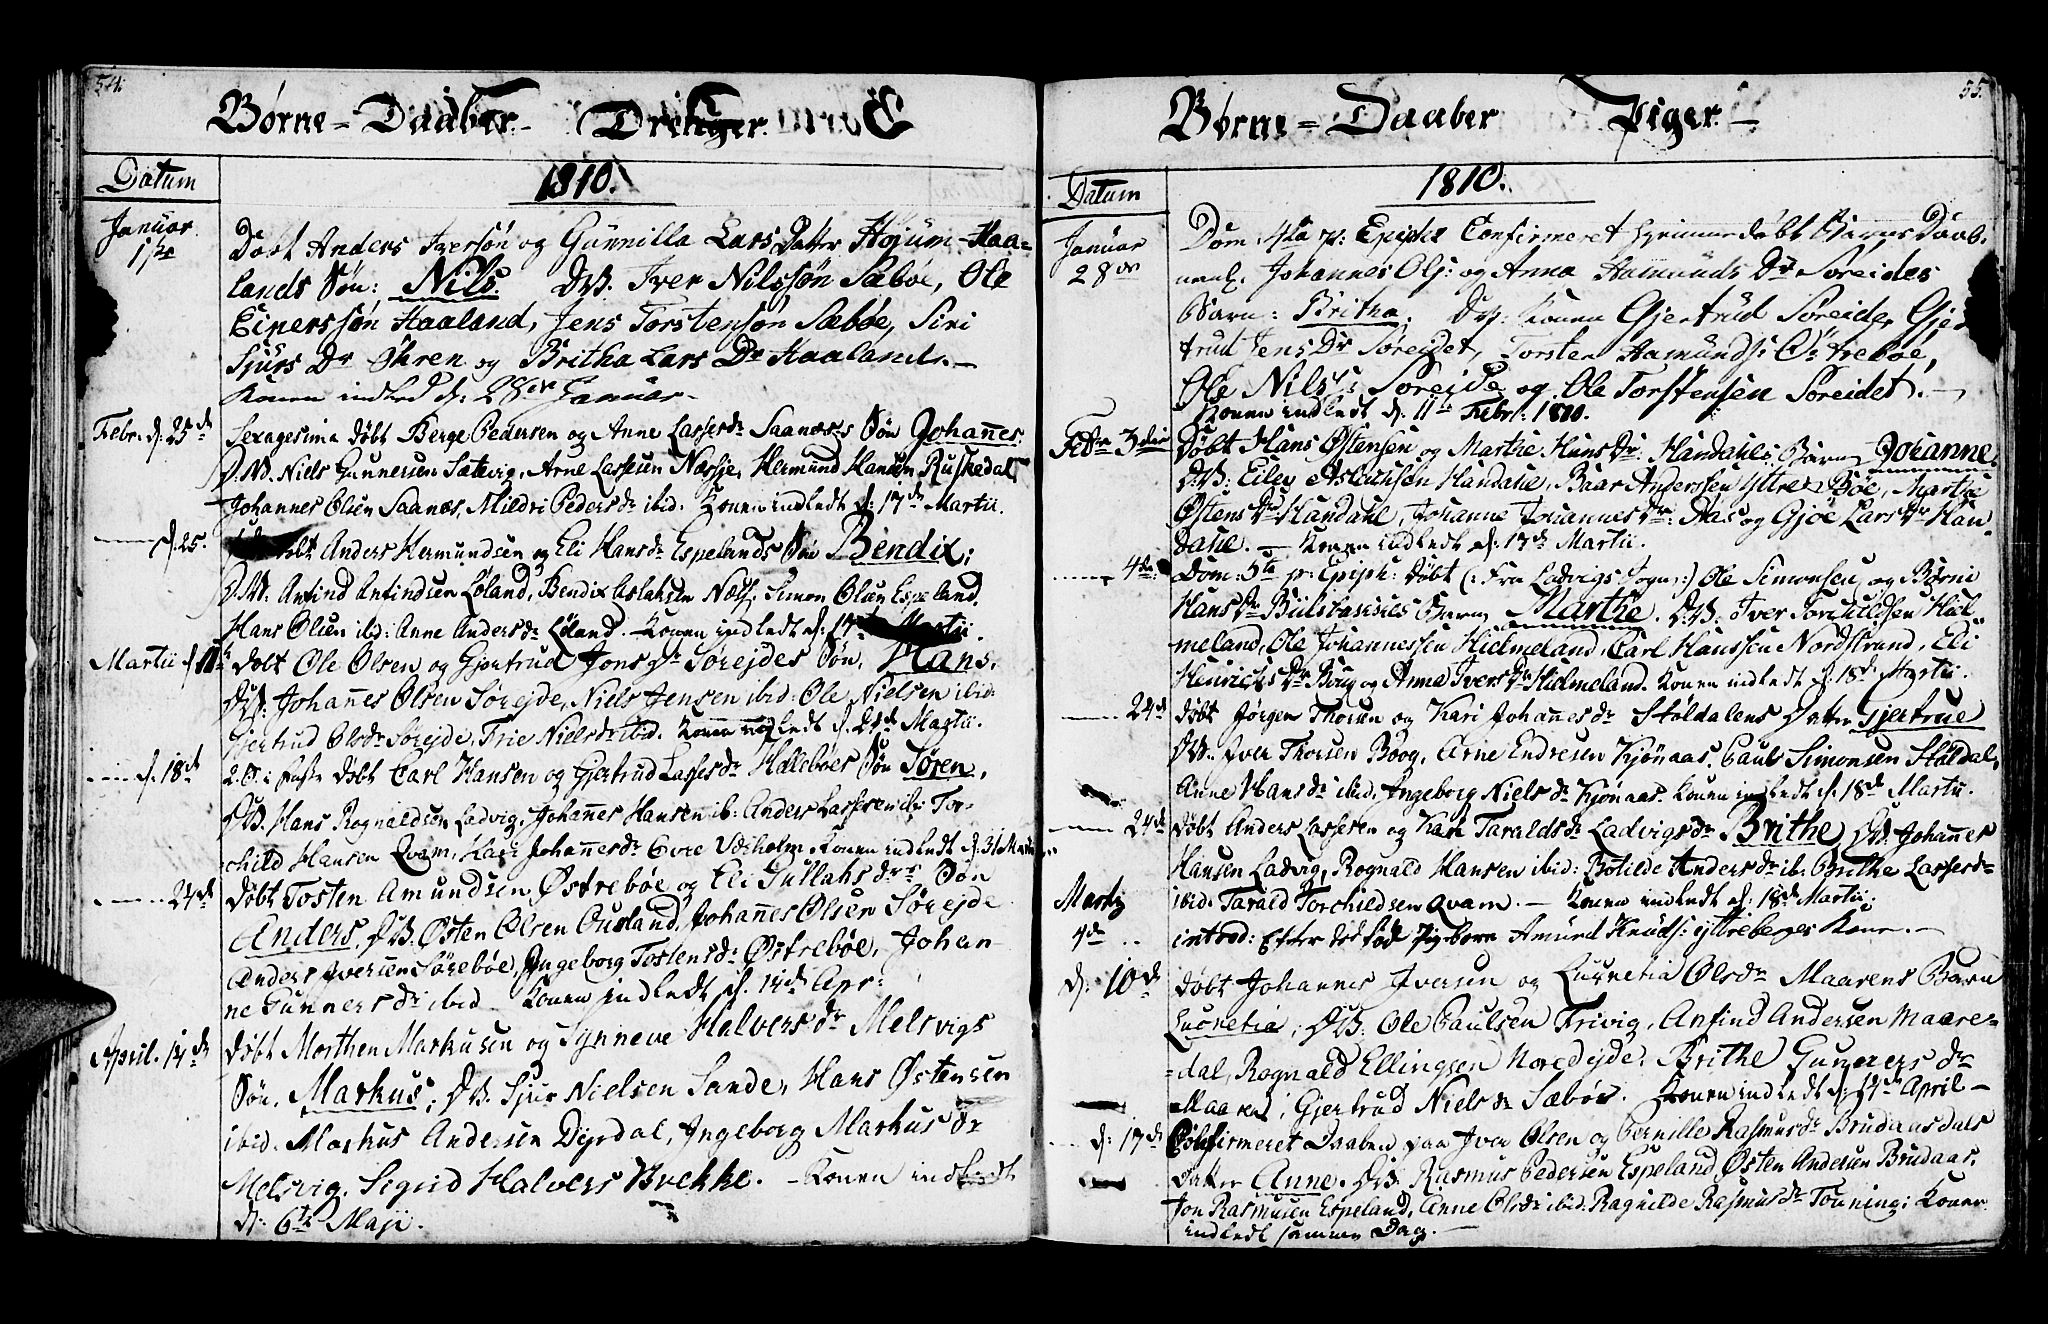 54.
Børne-Daaber Drenger.
Datum
1810.
Januar 1ste
Døbt Anders Iversøn og Gunnilla Lars Datter Højum-Haa-
lands Søn: Nils. DW. Iver Nilssøn Sæbøe, Ole
Einerssøn Haaland, Jens Torstensøn Sæbøe, Siri
Sjurs Dr Øhren og Britha Lars Dr Haaland.
Konen indled d: 28de Januar.
Febr. d. 25de
Sexagesima døbt Berge Pedersen og Anne Lassesdr Saanæs's Søn Johannes:
DW. Niels Gunnersen Sætevig, Arne Lassesen Næsje, Hermund Hansen Ruskedal
Johannes Olsen Saanæs, Mildri Pedersdr ibid. Konen indledt d: 17de Martii.
d. 25.
døbt Anders Hermundsen og Eli Hansdr Espelands Søn Bendix;
DW. Anfind Anfindsen Løland, Bendix Aslaksen Næss, Simon Olsen Espeland.
Hans Olsen ibid: Anne Andersdr Løland. Konen indledt d: 17de Martii.
Martii d. 11te
Døbt Ole Olsen og Gjertrud Jons Dr Sørejdes Søn, Hans.
DW: Johannes Olsen Sørejde, Niels Jensen ibid: Ole Nielsen ibid:
Gjertrud Olsdr Sørejde, Trie Nielsdr ibid. Konen indledt d. 24de Martii.
d. 18de
2. S. i Faste døbt Carl Hansen og Gjertrud Lassesdr Halleböes Søn Søren,
DW. Hans Rognaldsøn Ladvig, Johannes Hansen ib: Anders Lassesen ib: Tor-
child Hansen Qvam, Kari Johannesdr Evre Konen indledt d. 31 Martii
24de
Døbt Tosten Amundsen Østrebøe og Eli Gullaksdrs Søn
Anders, DW. Østen Olsen Ousland, Johannes Olsen Sørejde
Anders Iversen Sörebøe, Ingeborg Tostensdr Østrebøe, Johan-
ne Gunnersdr ibid Konen indledt d. 14de Apr:
April. 14de
døbt Morthen Markusen og Synneve Halvers dr Melsvigs
Søn. Markus; DW. Sjur Nielsen Sande, Hans Østensen
ibid. Markus Andersen Dyrdal, Ingeborg Markus dr
Melsvig. Sigrid Halvers Brekke. - Konen indledt
d: 6te Maji.
55.
Børne-Daaber Piger.
Datum
1810.
Januar 28de
Dom. 4ta p: Epiph: Confirmeret hjemmedøbt Barns Daab.
nenl. Johannes Ols: og Anna Aamunds Dr Søreides
Barn: Britha. DW: Konen Gjertrud Søreide, Gjer-
trud Jens Dr Søreidet, Torsten Aamunds: Østrebøe,
Ole Nils: Søreide og Ole Torstensen Søreidet.
Konen indledt d. 11te Febr. 1810.
Febr 3die
Døbt Hans Østensen og Marthe Hans Dr: Handahls Barn Johanne.
DW: Eilev Aslachsøn Handahl, Baar Anderssen Yttre Bøe, Marthe
Østens Dr Handahl, Johanne Johannes Dr: Aas og Gjøe Lars Dr Han-
dahl. - Konen indledt d: 17de Martii.
4de
Dom: 5ta p: Epiph: døbt (: Fra Ladvigs Sogn :) Ole Simonsen og Børni
Hans Dr Barn Marthe. DW: Iver Torchildsen Hiel-
meland, Ole Johannessen Hielmeland, Carl Hanssen Nordstrand, Eli
Henrichs Dr Boug og Anna Ivers Dr Hielmeland. Konen indledt d: 18de Martii.
24de
døbt Jørgen Thorsen og Kari Johannesdr Støldalens Datter Gjertrue
DW. Iver Thorsen Boog, Arne Endresen Kjønaas. Paul Simonsen Støldal,
Anne Hansdr ibid. Ingeborg Niels dr Kjønaas. Konen indledt d. 18de Martii.
24de
døbt Anders Lassesen og Kari Taraldsdr Ladvigs dr Brithe, DW. Johannes
Hansen Ladvig, Rognald Hansen ibid: Botilde Andersdr ib. Brithe Lassesdr
ibid. Tarald Torchildsen Qvam. - Konen indledt d: 18de Martii.
Martij 4de
introd: Efter dødfød Pigebarn Amund Knuds: Yttrebergs Kone.
d: 10de
døbt Johannes Iversen og Lucretia Olsdr Maarens Barn
Lucretia, DW: Ole Paulsen Trivig, Anfind Andersen Maare-
dal, Rognald Ellingsen Noredejde, Brithe Gunners dr
Maaren, Gjertrud Nielsdr Sæbøe. Konen indledt d: April
d: 17de
Confirmeret Daaben paa Iver Olsen og Pernille Rasmusdr Brudaasdals
datter Anne. DW. Rasmus Pedersen Espeland, Østen Andersen Brudaas,
Jon Rasmusen Espeland, Anne Olsdr ibid: Ragnilde Rasmusdr Tonning: Konen
indledt samme Dag.